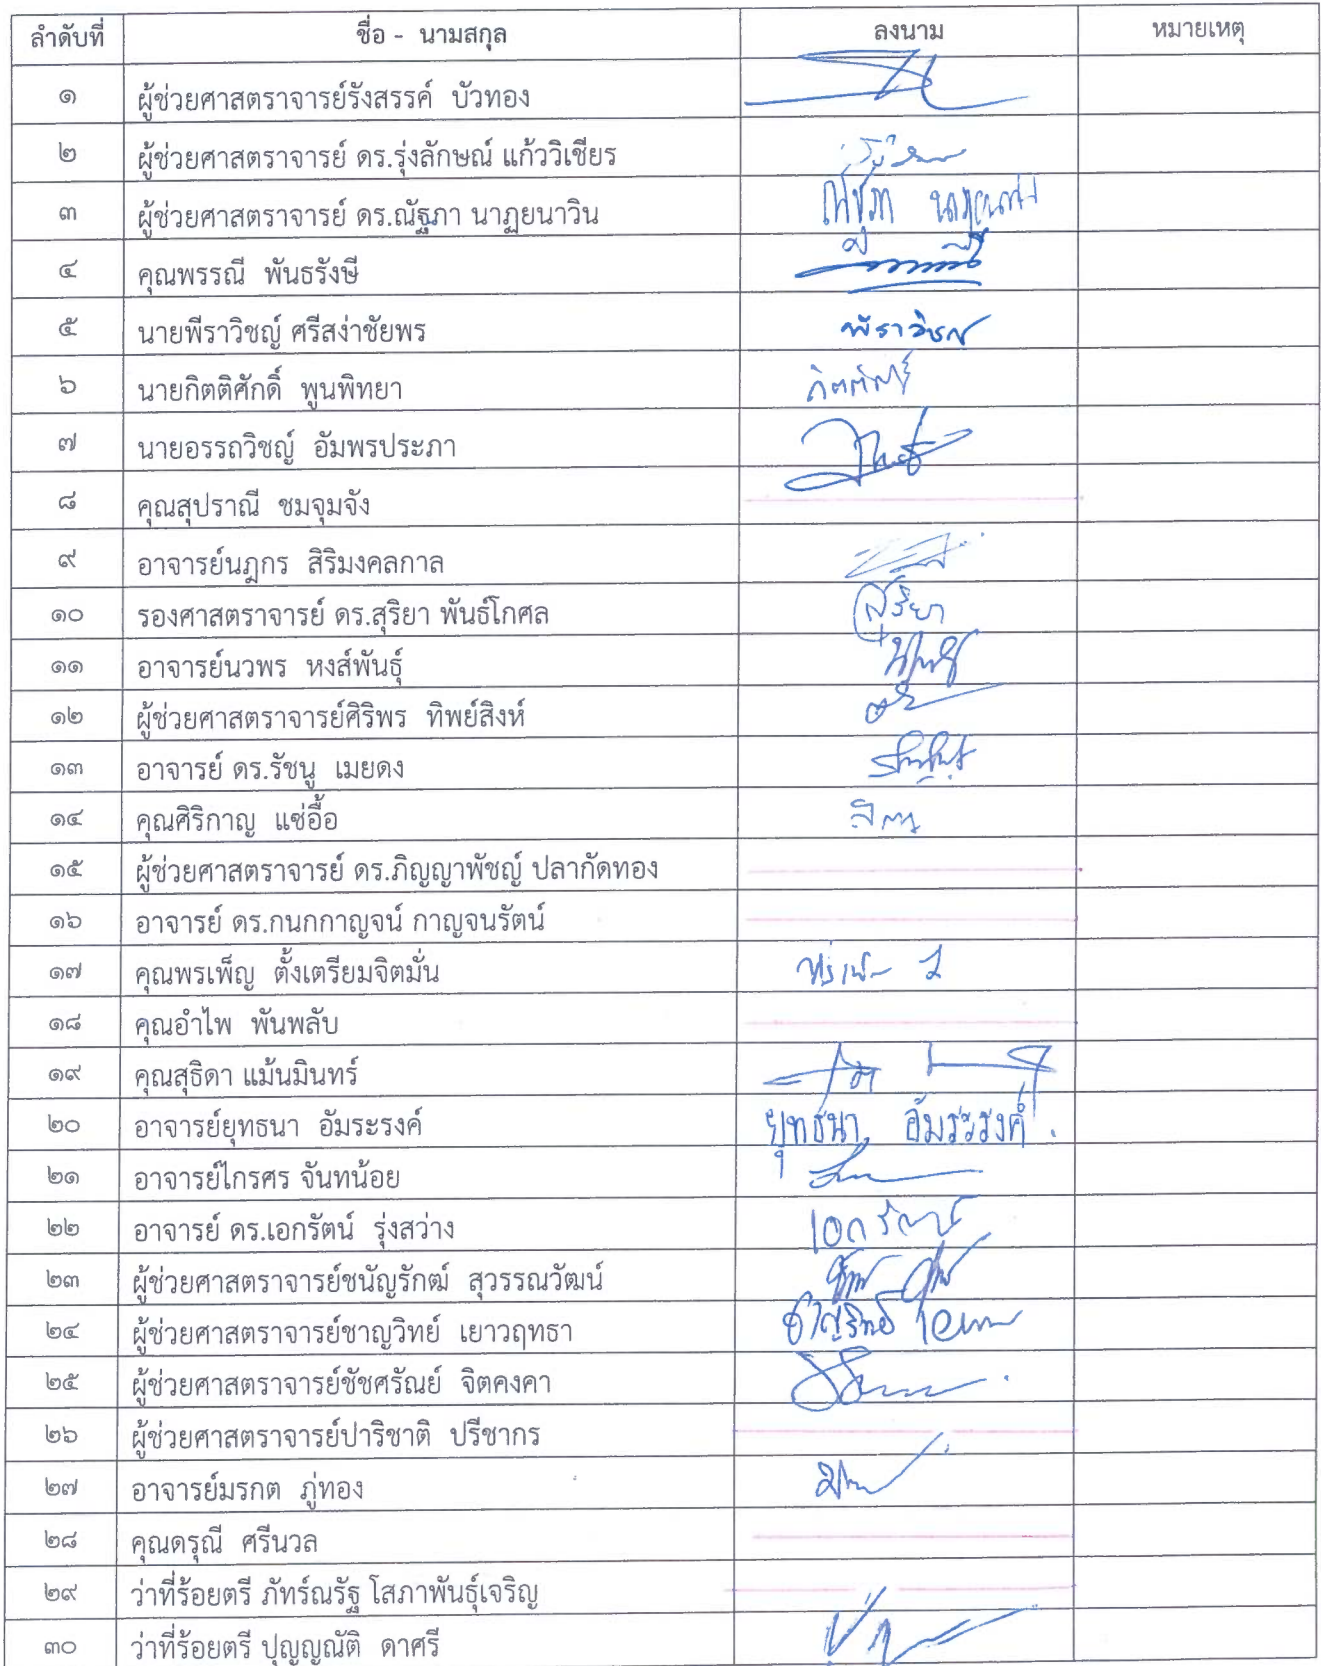 ลำดับที่ ชื่อ - นามสกุล ลงนาม หมายเหตุ
๑ ผู้ช่วยศาสตราจารย์รังสรรค์ บัวทอง
๒ ผู้ช่วยศาสตราจารย์ ดร.รุ่งลักษณ์ แก้ววิเชียร
๓ ผู้ช่วยศาสตราจารย์ ดร.ณัฐภา นาฏยนาวิน ณัฐภา นาฏยนาวิน
๔ คุณพรรณี พันธรังษี
๕ นายพีราวิชญ์ ศรีสง่าชัยพร พีราวิชญ์
๖ นายกิตติศักดิ์ พูนพิทยา กิตติศักดิ์
๗ นายอรรถวิชญ์ อัมพรประภา
๘ คุณสุปราณี ชมจุมจัง
๙ อาจารย์นฎกร สิริมงคลกาล
๑๐ รองศาสตราจารย์ ดร.สุริยา พันธ์โกศล สุริยา
๑๑ อาจารย์นวพร หงส์พันธุ์
๑๒ ผู้ช่วยศาสตราจารย์ศิริพร ทิพย์สิงห์
๑๓ อาจารย์ ดร.รัชนู เมยดง
๑๔ คุณศิริกาญ แซ่อื้อ
๑๕ ผู้ช่วยศาสตราจารย์ ดร.ภิญญาพัชญ์ ปลากัดทอง
๑๖ อาจารย์ ดร.กนกกาญจน์ กาญจนรัตน์
๑๗ คุณพรเพ็ญ ตั้งเตรียมจิตมั่น
๑๘ คุณอำไพ พันพลับ
๑๙ คุณสุธิดา แม้นมินทร์
๒๐ อาจารย์ยุทธนา อัมระรงค์ ยุทธนา อัมระรงค์
๒๑ อาจารย์ไกรศร จันทน้อย
๒๒ อาจารย์ ดร.เอกรัตน์ รุ่งสว่าง เอกรัตน์
๒๓ ผู้ช่วยศาสตราจารย์ชนัญรักฒ์ สุวรรณวัฒน์
๒๔ ผู้ช่วยศาสตราจารย์ชาญวิทย์ เยาวฤทธา ชาญวิทย์
๒๕ ผู้ช่วยศาสตราจารย์ชัชศรัณย์ จิตคงคา
๒๖ ผู้ช่วยศาสตราจารย์ปาริชาติ ปรีชากร
๒๗ อาจารย์มรกต ภู่ทอง
๒๘ คุณดรุณี ศรีนวล
๒๙ ว่าที่ร้อยตรี ภัทร์ณรัฐ โสภาพันธุ์เจริญ
๓๐ ว่าที่ร้อยตรี ปุญญณัติ ดาศรี